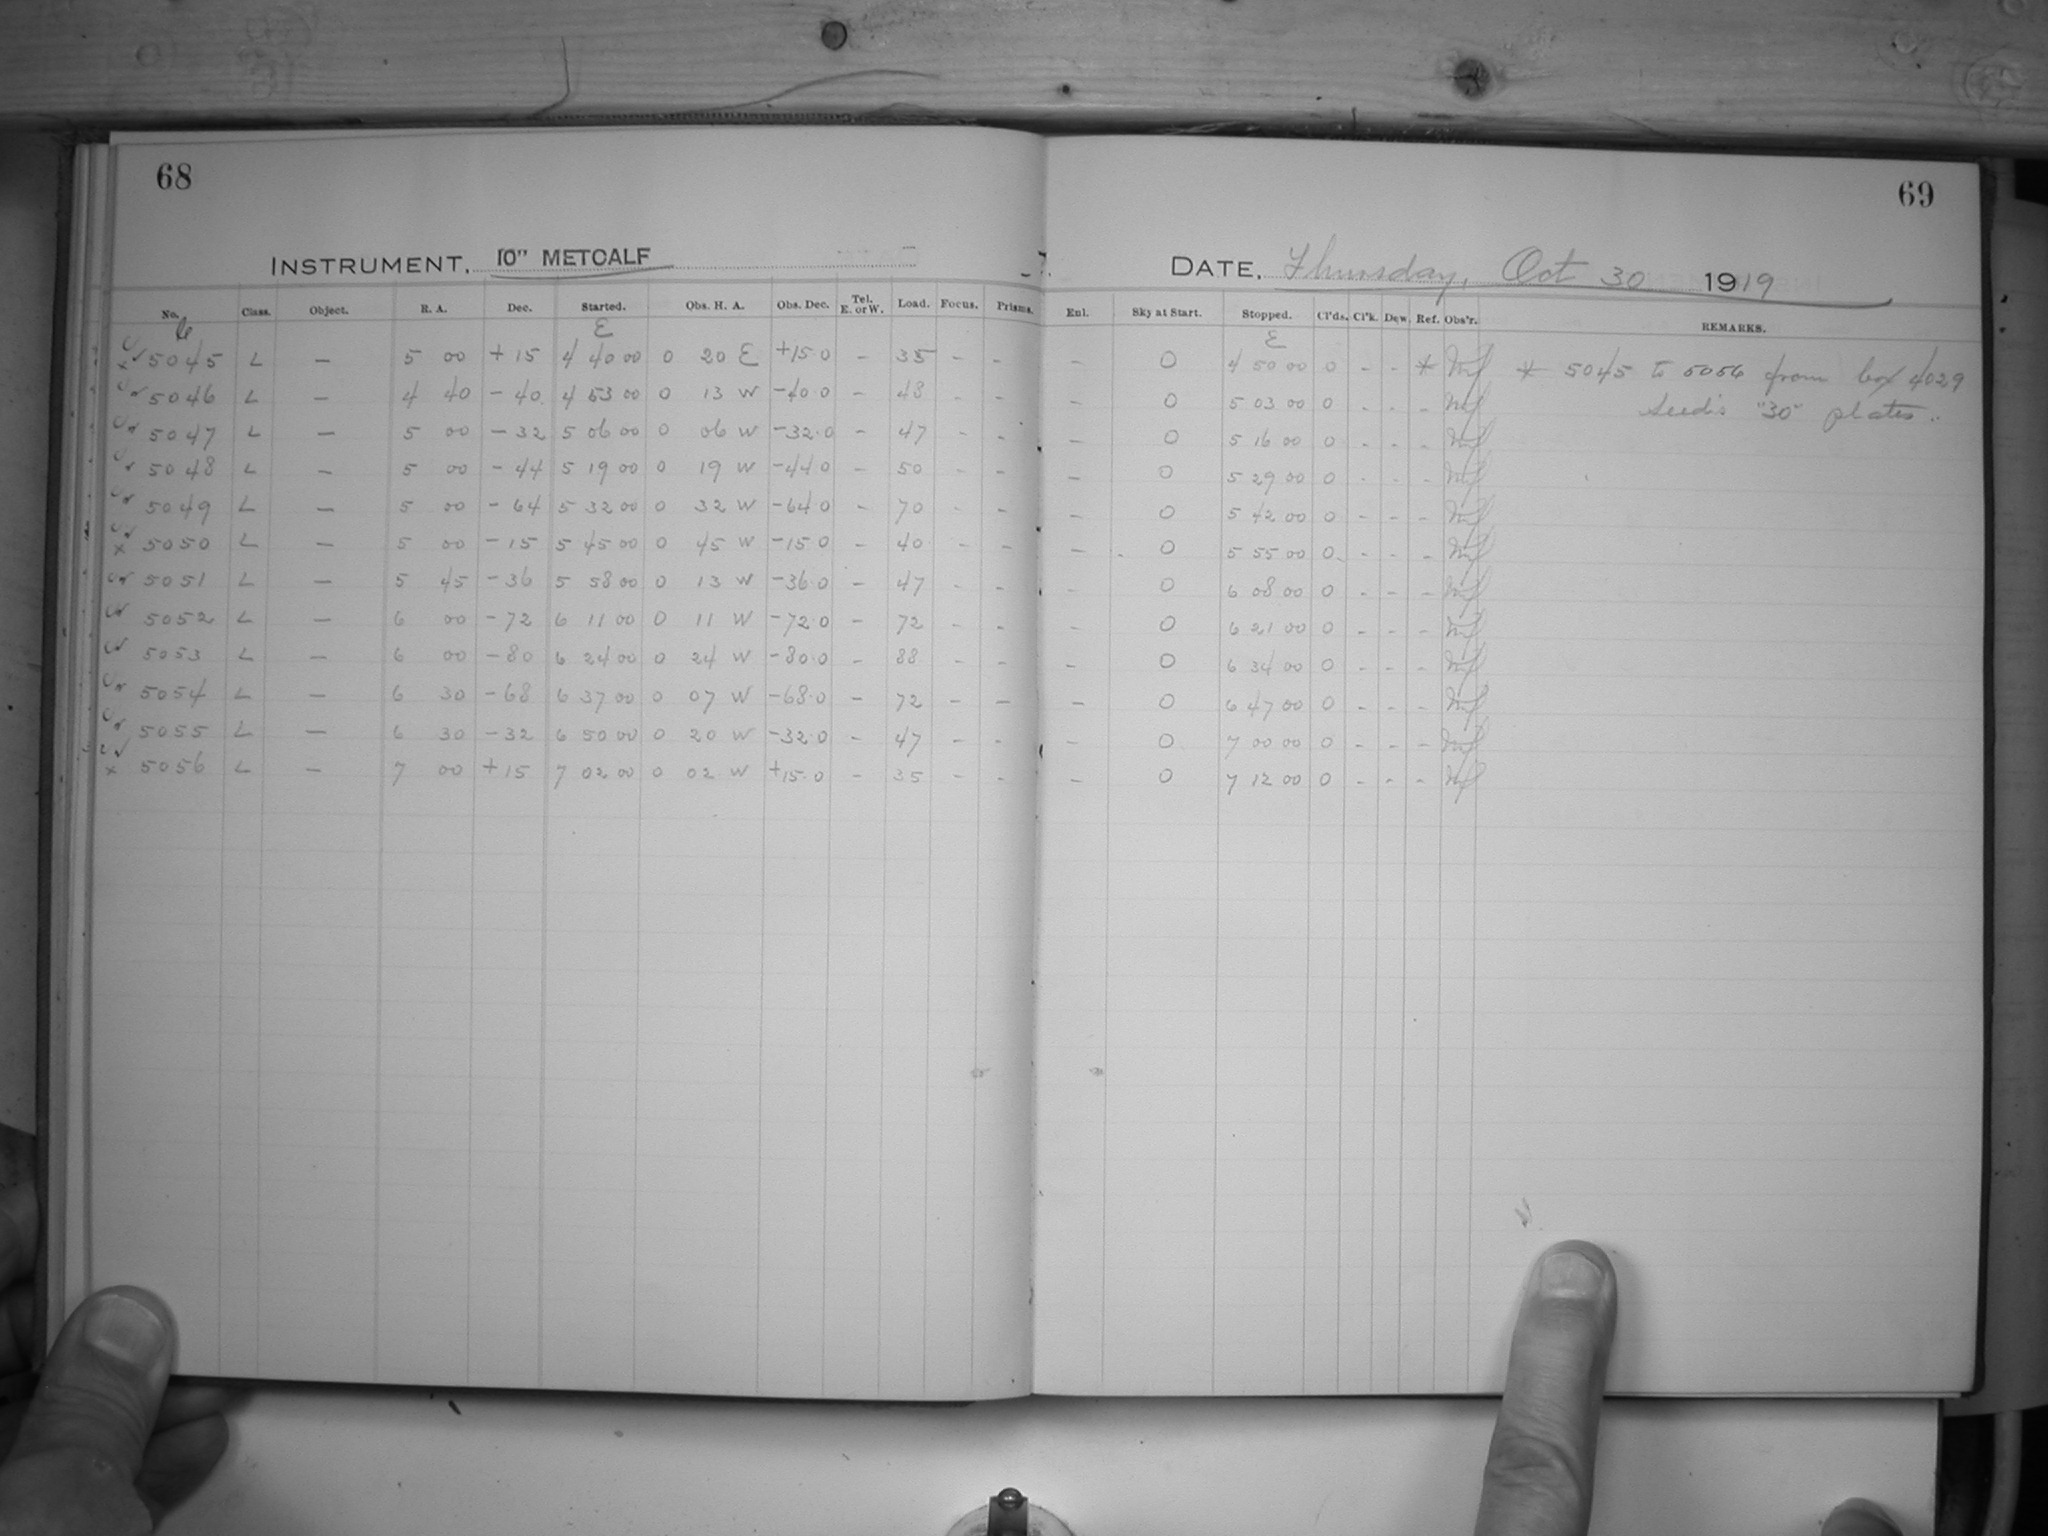 68
INSTRUMENT, 10" METCALF
No. Class. Object. R. A. Dec. Started. Obs. H. A. Obs. Dec. Tel. E. or W. Load. Focus. Prisms.
E
5045 L — 5 00 +15 4 40 00 0 20 E +15 0 - 35 - -
5046 L — 4 40 -40 4 53 00 0 13 W -40 0 - 48 - -
5047 L — 5 00 -32 5 06 00 0 06 W -32.0 - 47 - -
5048 L — 5 00 -44 5 19 00 0 19 W -44 0 - 50 - -
5049 L — 5 00 -64 5 32 00 0 32 W -64 0 - 70 - -
x 5050 L — 5 00 -15 5 45 00 0 45 W -15 0 - 40 - -
5051 L — 5 45 -36 5 58 00 0 13 W -36 0 - 47 - -
5052 L — 6 00 -72 6 11 00 0 11 W -72 0 - 72 - -
5053 L — 6 00 -80 6 24 00 0 24 W -80.0 - 88 - -
5054 L — 6 30 -68 6 37 00 0 07 W -68.0 - 72 - -
5055 L — 6 30 -32 6 50 00 0 20 W -32 0 - 47 - -
x 5056 L — 7 00 +15 7 02 00 0 02 W +15.0 - 35 - -
69
DATE, Thursday, Oct 30 1919
Enl. Sky at Start. Stopped. Cl'ds. Cl'k. Dew. Ref. Obs'r. REMARKS.
E
- 0 4 50 00 0 - - * * 5045 to 5056 from box 4029
- 0 5 03 00 0 - - - Seed's "30" plates.
- 0 5 16 00 0 - - -
- 0 5 29 00 0 - - -
- 0 5 42 00 0 - - -
- 0 5 55 00 0 - - -
- 0 6 08 00 0 - - -
- 0 6 21 00 0 - - -
- 0 6 34 00 0 - - -
- 0 6 47 00 0 - - -
- 0 7 00 00 0 - - -
- 0 7 12 00 0 - - -